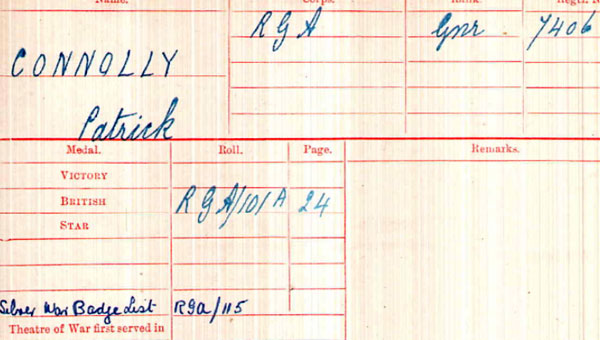 Name. Corps. Rank. Regtl. N
R G A Gnr 7406
CONNOLLY
Patrick
Medal. Roll. Page. Remarks.
VICTORY
BRITISH R G A/101 A 24
STAR
Silver War Badge List RGA/115
Theatre of War first served in